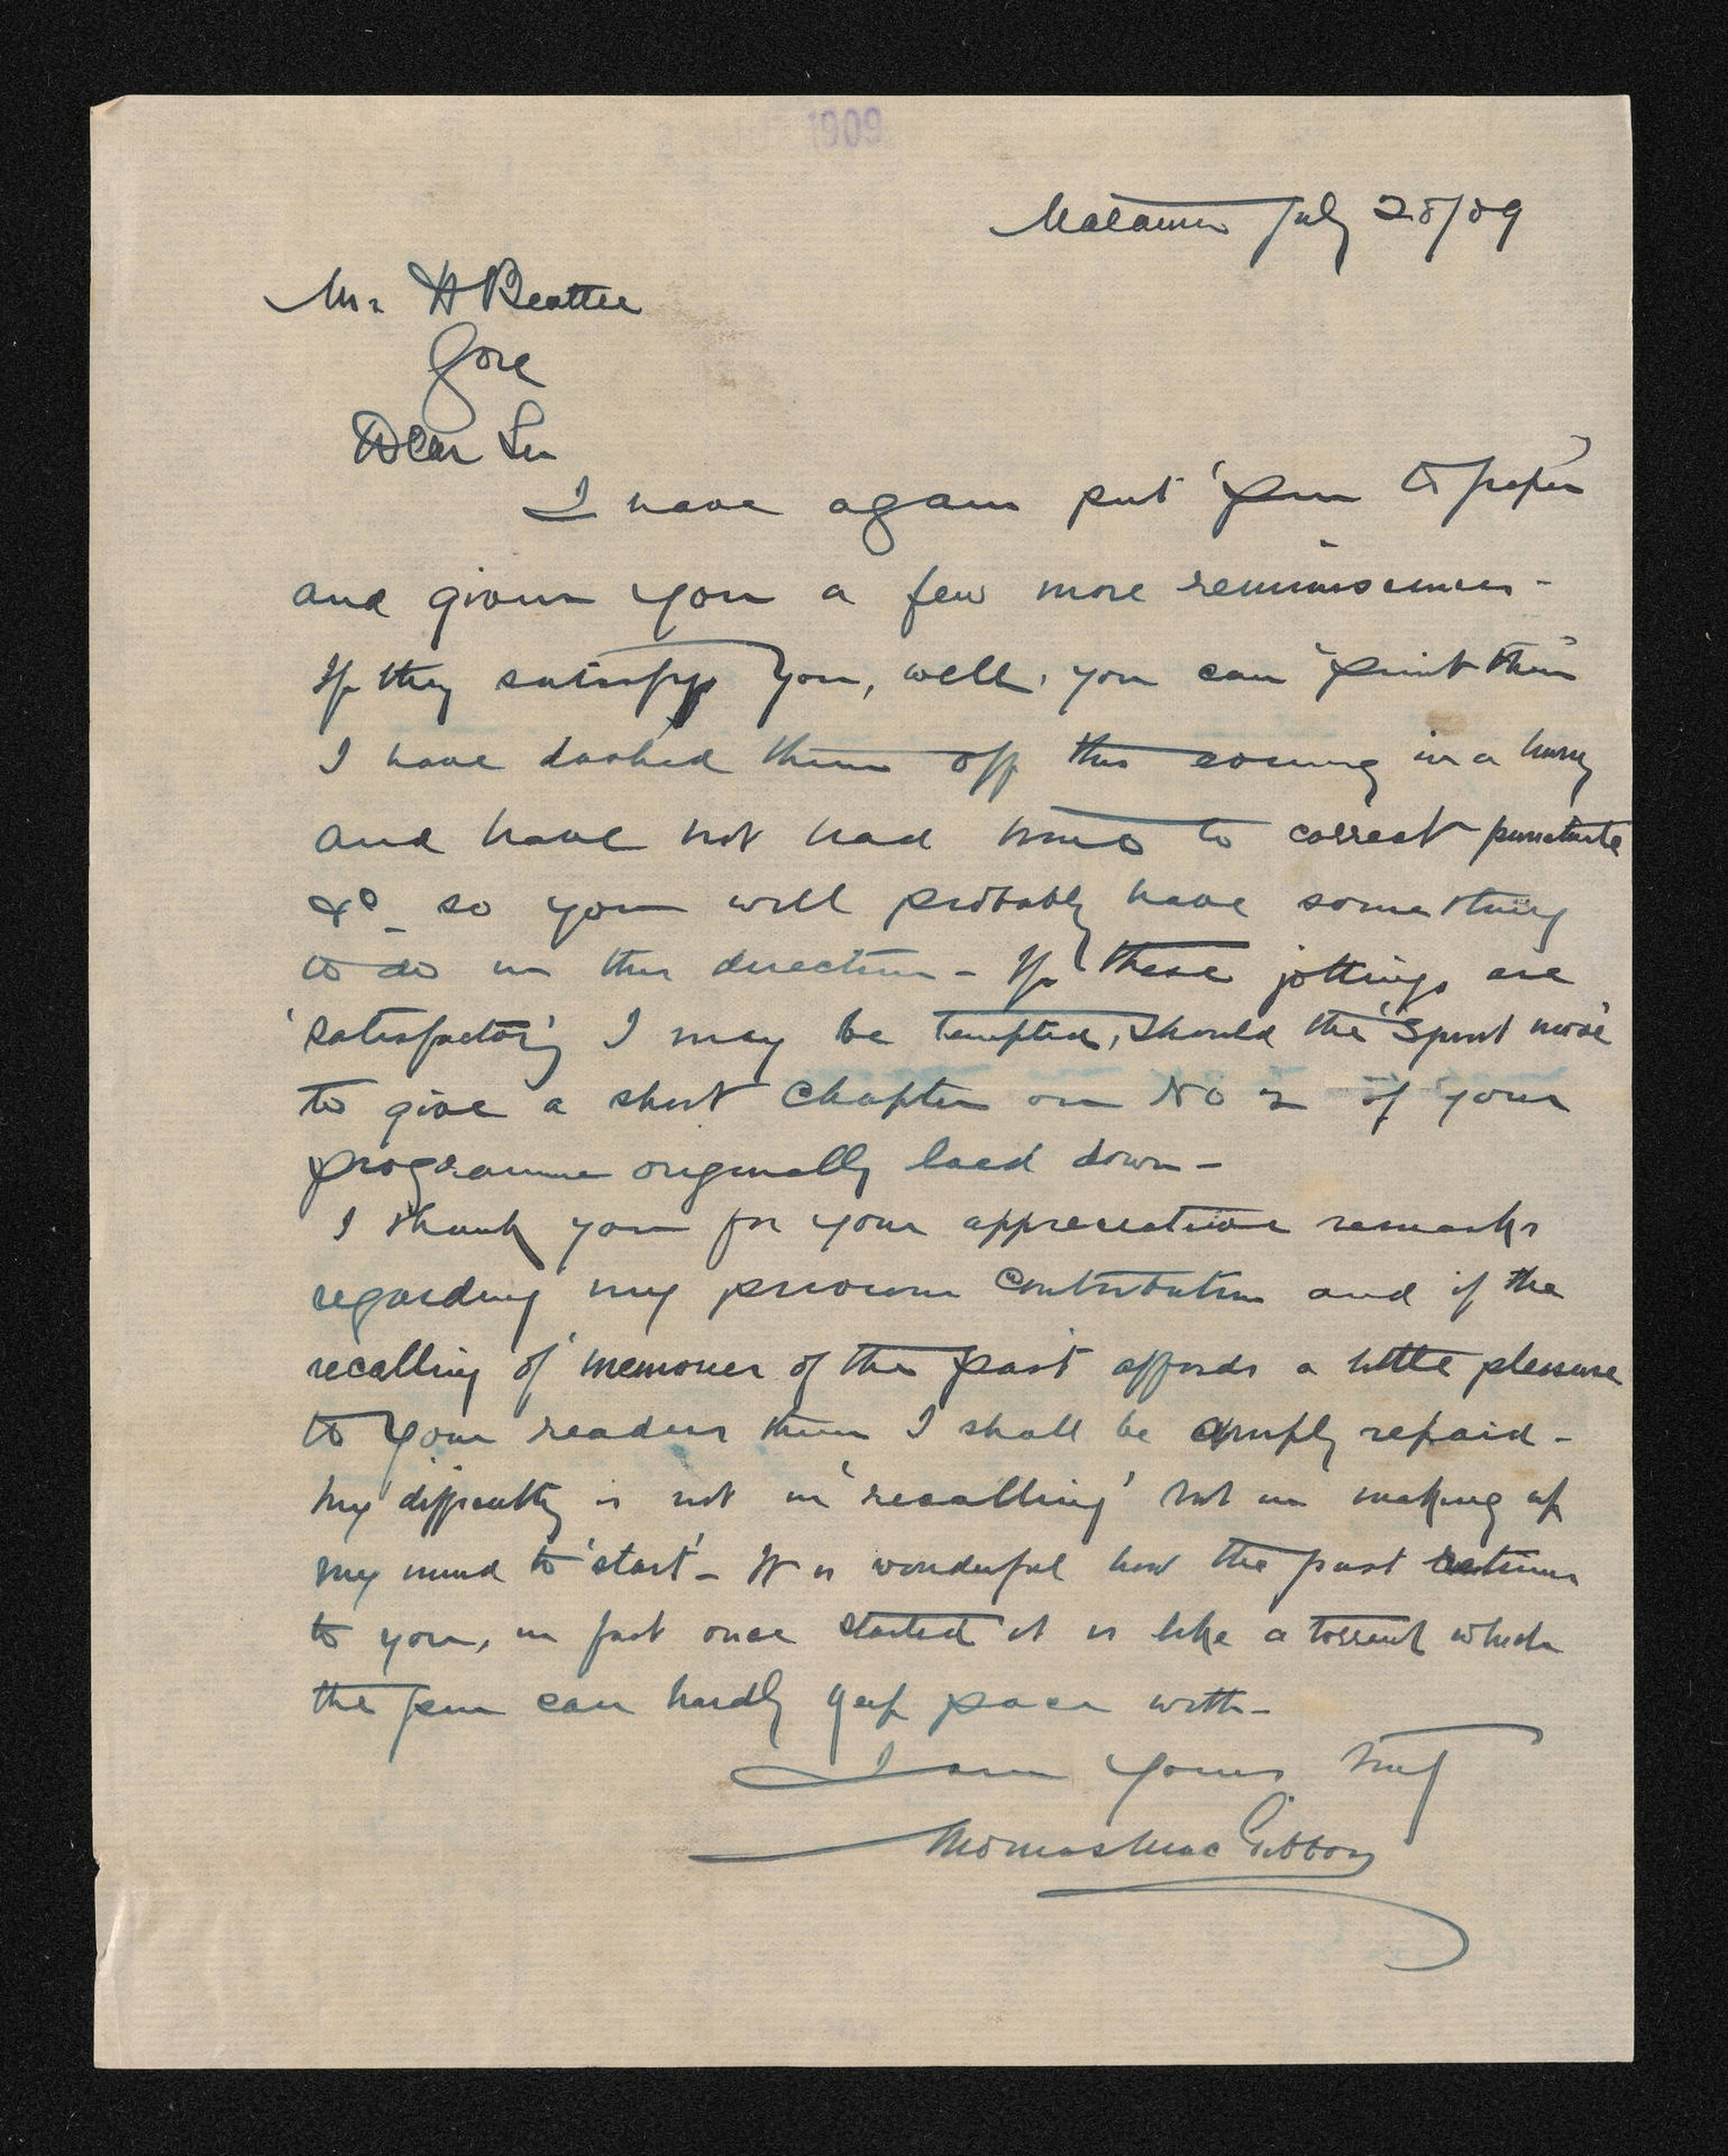 1909
Mataura July 28/09
Mr H Beattie
Gore
Dear Sir
I have again put 'pen to paper'
and given you a few more reminiscences -
If they satisfy you, well, you can "print them"
I have dashed them off this evening in a hurry
and have not had time to correct punctuate
&c - so you will probably have something
to do in this direction - If these jottings are
'satisfactory' I may be tempted, should the 'spirit move'
to give a short chapter on No 2 of your
programme originally laid down -
I thank you for your appreciative remarks
regarding my previous contribution and if the
recalling of 'memories of the past' affords a little pleasure
to your readers then I shall be amply repaid -
My difficulty is not in 'recalling' but in making up
my mind to 'start' - It is wonderful how the past returns
to you, in fact once started it is like a torrent which
the pen can hardly keep pace with -
I am yours truly
Thomas MacGibbon